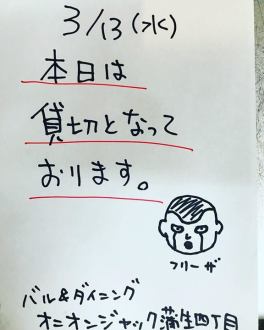 3/13(水)
本日は
貸切となって
おります。
フリーザ
バル&ダイニング
オニオンジャック蒲生四丁目